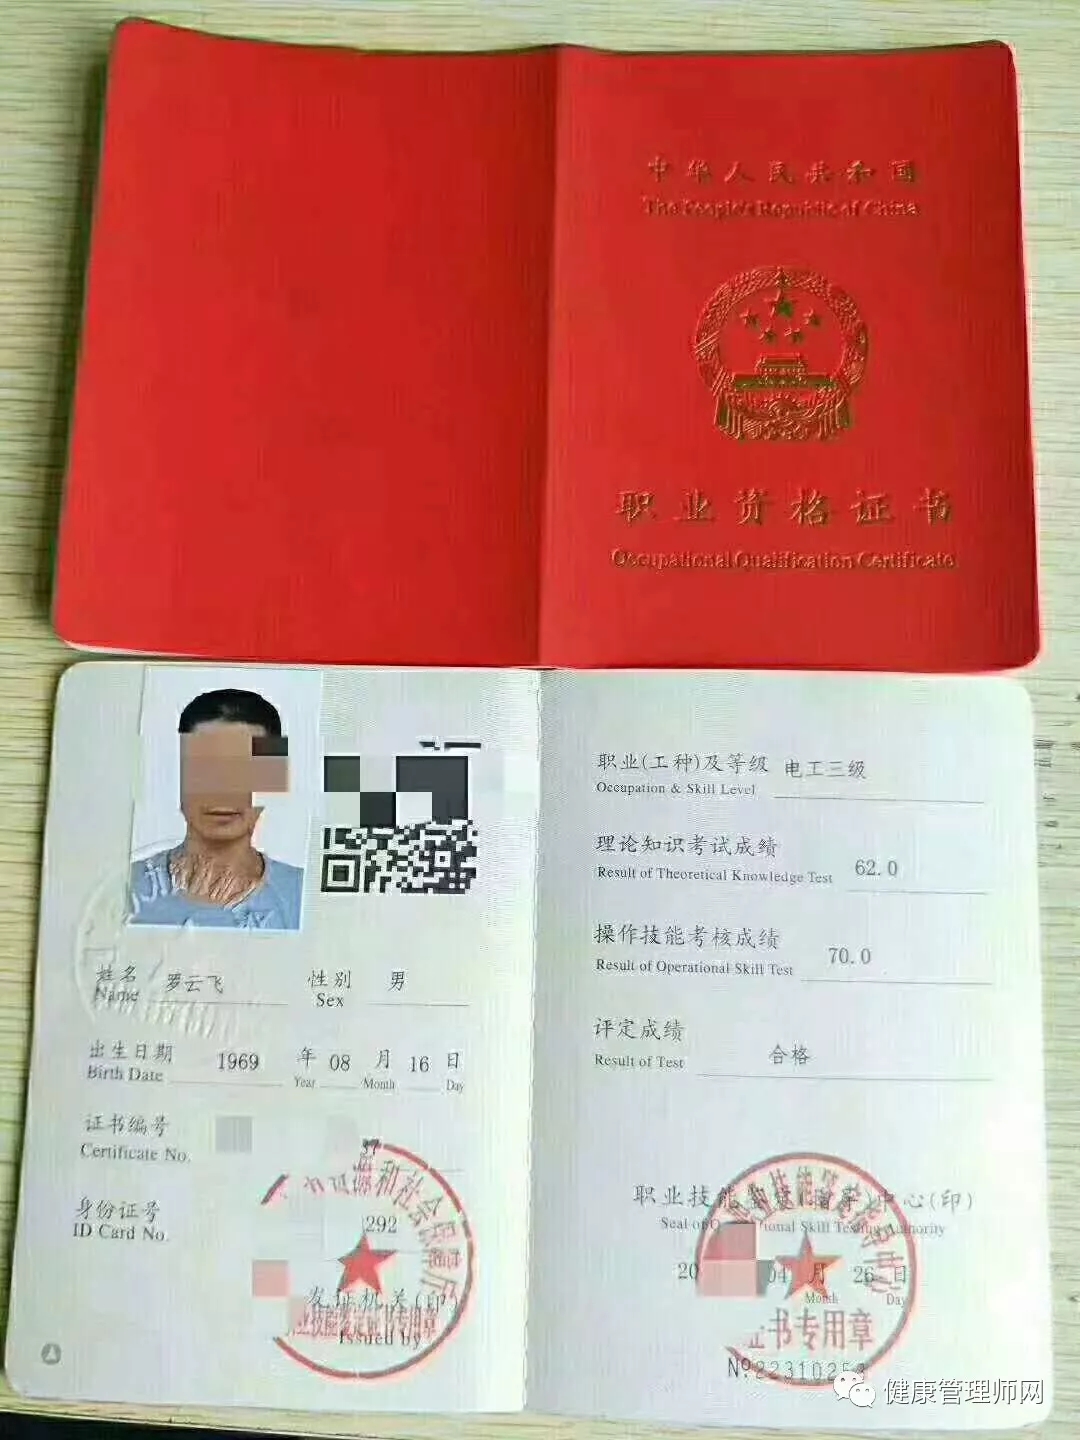 中华人民共和国
The People's Republic of China
职业资格证书
Occupational Qualification Certificate
姓名 罗云飞 性别 男
Name Sex
出生日期 1969 年 08 月 16 日
Birth Date Year Month Day
证书编号
Certificate No. 37
身份证号 292
ID Card No.
和社会保障厅
发证机关(印)
Issued by
业技能鉴定证书专用章
职业(工种)及等级 电工三级
Occupation & Skill Level
理论知识考试成绩 62.0
Result of Theoretical Knowledge Test
操作技能考核成绩 70.0
Result of Operational Skill Test
评定成绩 合格
Result of Test
职业技能鉴定(指导)中心(印)
Seal of Occupational Skill Testing Authority
20 04 月 26 日
Month Day
证书专用章
№22310253
健康管理师网